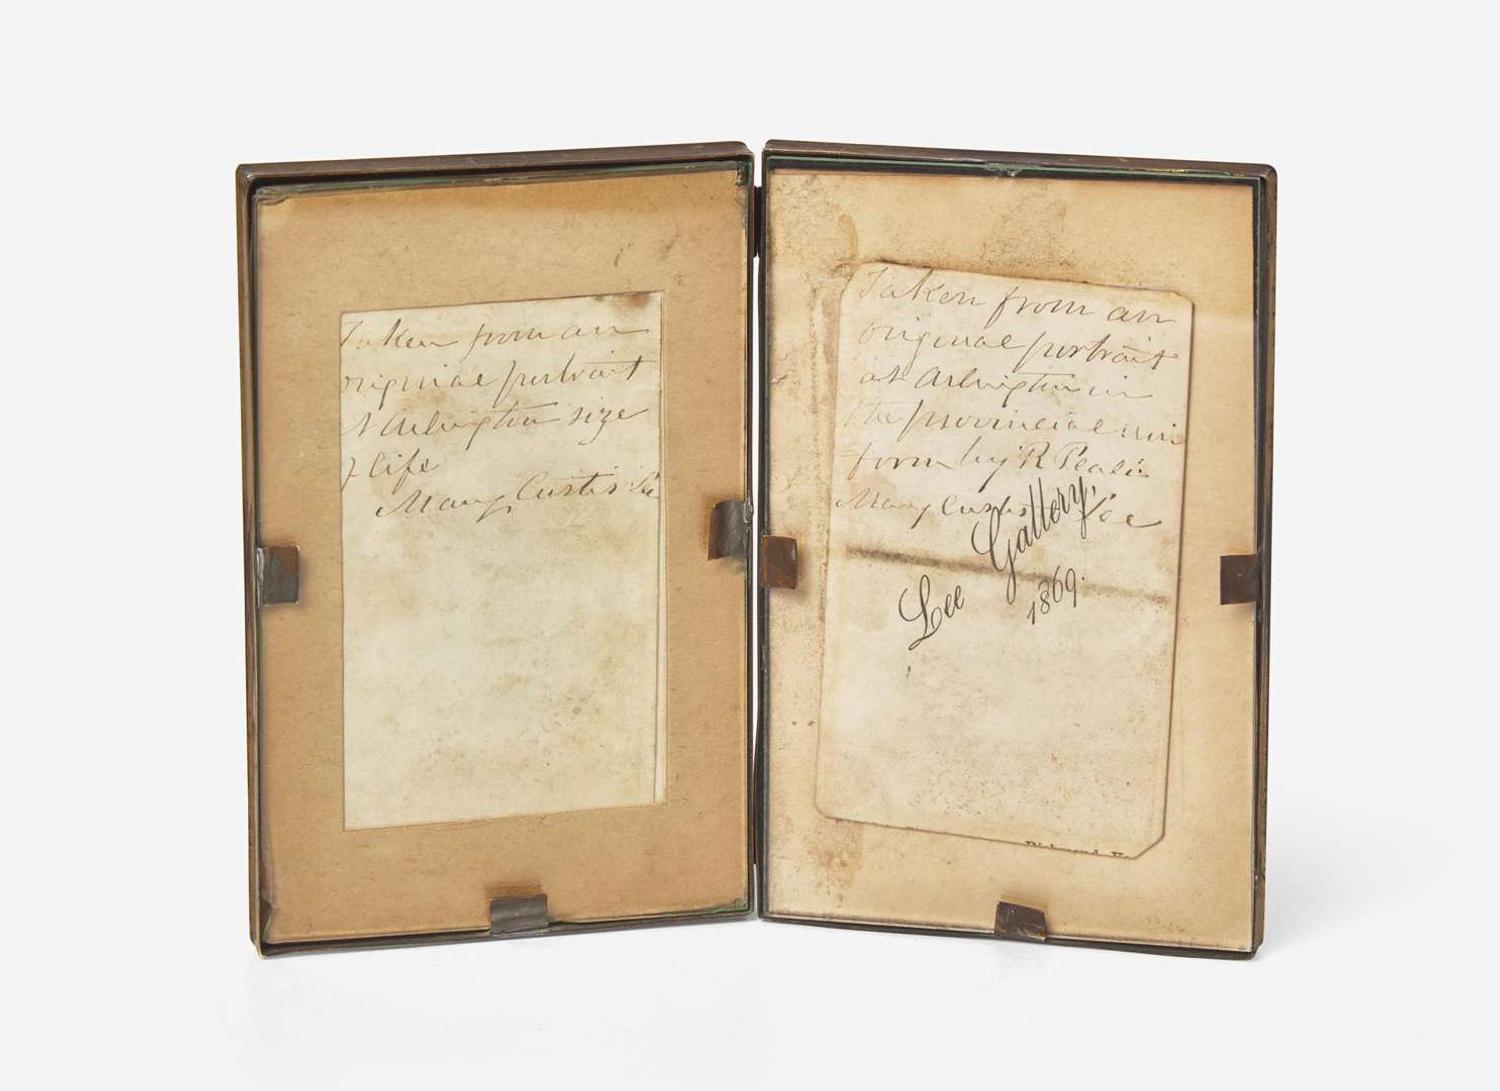 Taken from an
original portrait
at Arlington size
of life
Mary Custis Lee
Taken from an
original portrait
at Arlington in
the provincial uni
form by R Peale
Mary Custis Lee
Lee Gallery,
1869.
Richmond, Va.